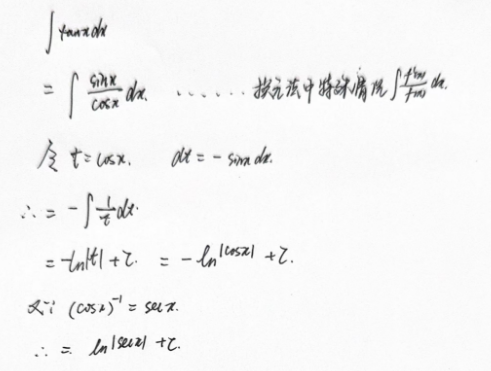 ∫tanxdx
= ∫ sinx/cosx dx. ...... 换元法中特殊情况 ∫ f'(x)/f(x) dx.
令 t=cosx. dt=-sinxdx.
∴ = -∫ 1/t dt.
= -ln|t|+C. = -ln|cosx|+C.
又∵ (cosx)⁻¹=secx.
∴ = ln|secx|+C.